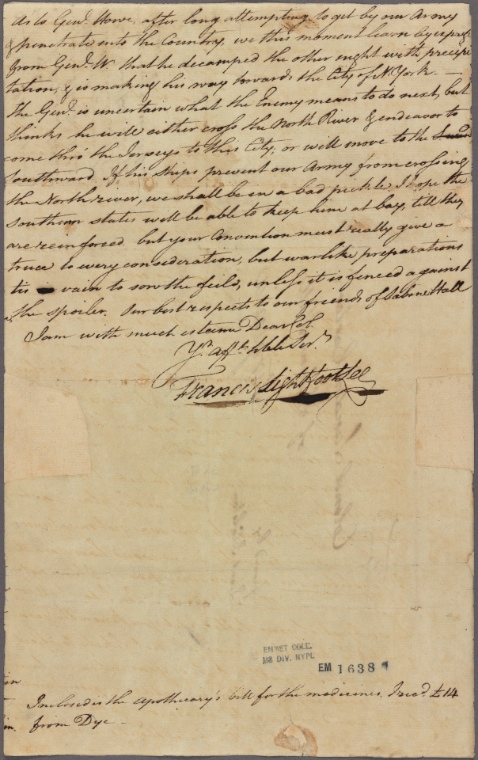 As to Genl. Howe, after long attempting to get by our Army
& penetrate into the Country, we this moment learn by express
from Genl. W. that he decamped the other night with precipi
tation, & is making his way towards the City of N York —
The Genl. is uncertain what the Enemy means to do next, but
thinks he will either cross the North River & endeavor to
come thro' the Jerseys to this City, or will move to the
Southward. If his ships prevent our Army from crossing
the North river, we shall be in a bad pickle. I hope the
southern states will be able to keep him at bay, till they
are reenforced but your Convention must really give a
truce to every consideration, but warlike preparations
tis vain to sow the feild, unless it is fenced against
the spoiler. Our best respects to our friends of Sabine Hall
I am with much esteem Dear Col.
Yr. afft. hble Servt.
Francis Lightfoot Lee
EMMET COLL.
MS DIV. NYPL
EM 1638
Inclosed is the Apothecary's bill for the medicines. I recd. £14
from Dye —